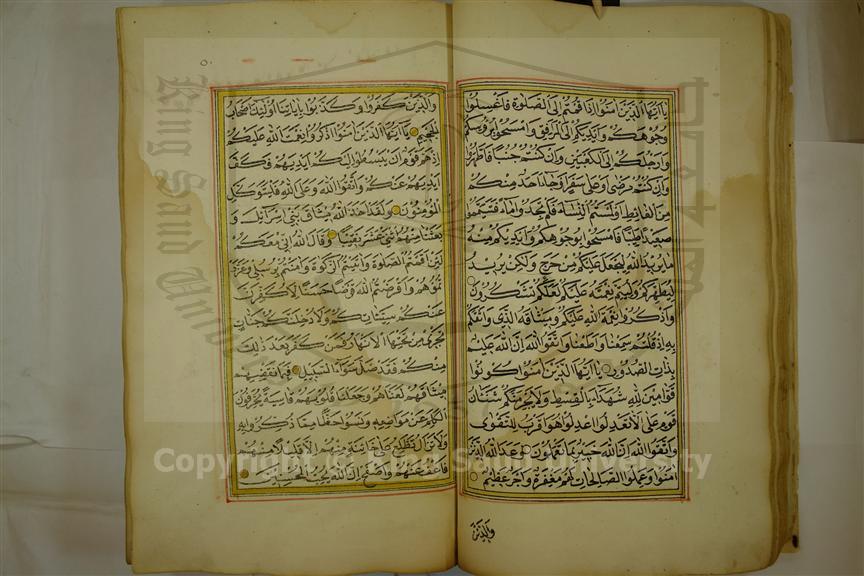 يا ايها الذين امنوا اذا قمتم الى الصلوة فاغسلوا
وجوهكم وايديكم الى المرافق وامسحوا برؤسكم
وارجلكم الى الكعبين وان كنتم جنبا فاطهروا
وان كنتم مرضى او على سفر او جاء احد منكم
من الغائط او لمستم النساء فلم تجدوا ماء فتيمموا
صعيدا طيبا فامسحوا بوجوهكم وايديكم منه
ما يريد الله ليجعل عليكم من حرج ولكن يريد
ليطهركم وليتم نعمته عليكم لعلكم تشكرون
واذكروا نعمة الله عليكم وميثاقه الذي واثقكم
به اذ قلتم سمعنا واطعنا واتقوا الله ان الله عليم
بذات الصدور يا ايها الذين امنوا كونوا
قوامين لله شهداء بالقسط ولا يجرمنكم شنئان
قوم على الا تعدلوا اعدلوا هو اقرب للتقوى
واتقوا الله ان الله خبير بما تعملون وعد الله الذين
امنوا وعملوا الصالحات لهم مغفرة واجر عظيم
والذين
والذين كفروا وكذبوا باياتنا اولئك اصحاب
الجحيم يا ايها الذين امنوا اذكروا نعمت الله عليكم
اذ هم قوم ان يبسطوا اليكم ايديهم فكف
ايديهم عنكم واتقوا الله وعلى الله فليتوكل
المؤمنون ولقد اخذ الله ميثاق بني اسرائيل و
بعثنا منهم اثني عشر نقيبا وقال الله اني معكم
لئن اقمتم الصلوة واتيتم الزكوة وامنتم برسلي وعزر
تموهم واقرضتم الله قرضا حسنا لاكفرن
عنكم سيئاتكم ولادخلنكم جنات
تجري من تحتها الانهار فمن كفر بعد ذلك
منكم فقد ضل سواء السبيل فبما نقضهم
ميثاقهم لعناهم وجعلنا قلوبهم قاسية يحرفون
الكلم عن مواضعه ونسوا حظا مما ذكروا به
ولا تزال تطلع على خائنة منهم الا قليلا منهم
فاعف عنهم واصفح ان الله يحب المحسنين
Copyright © King Saud University